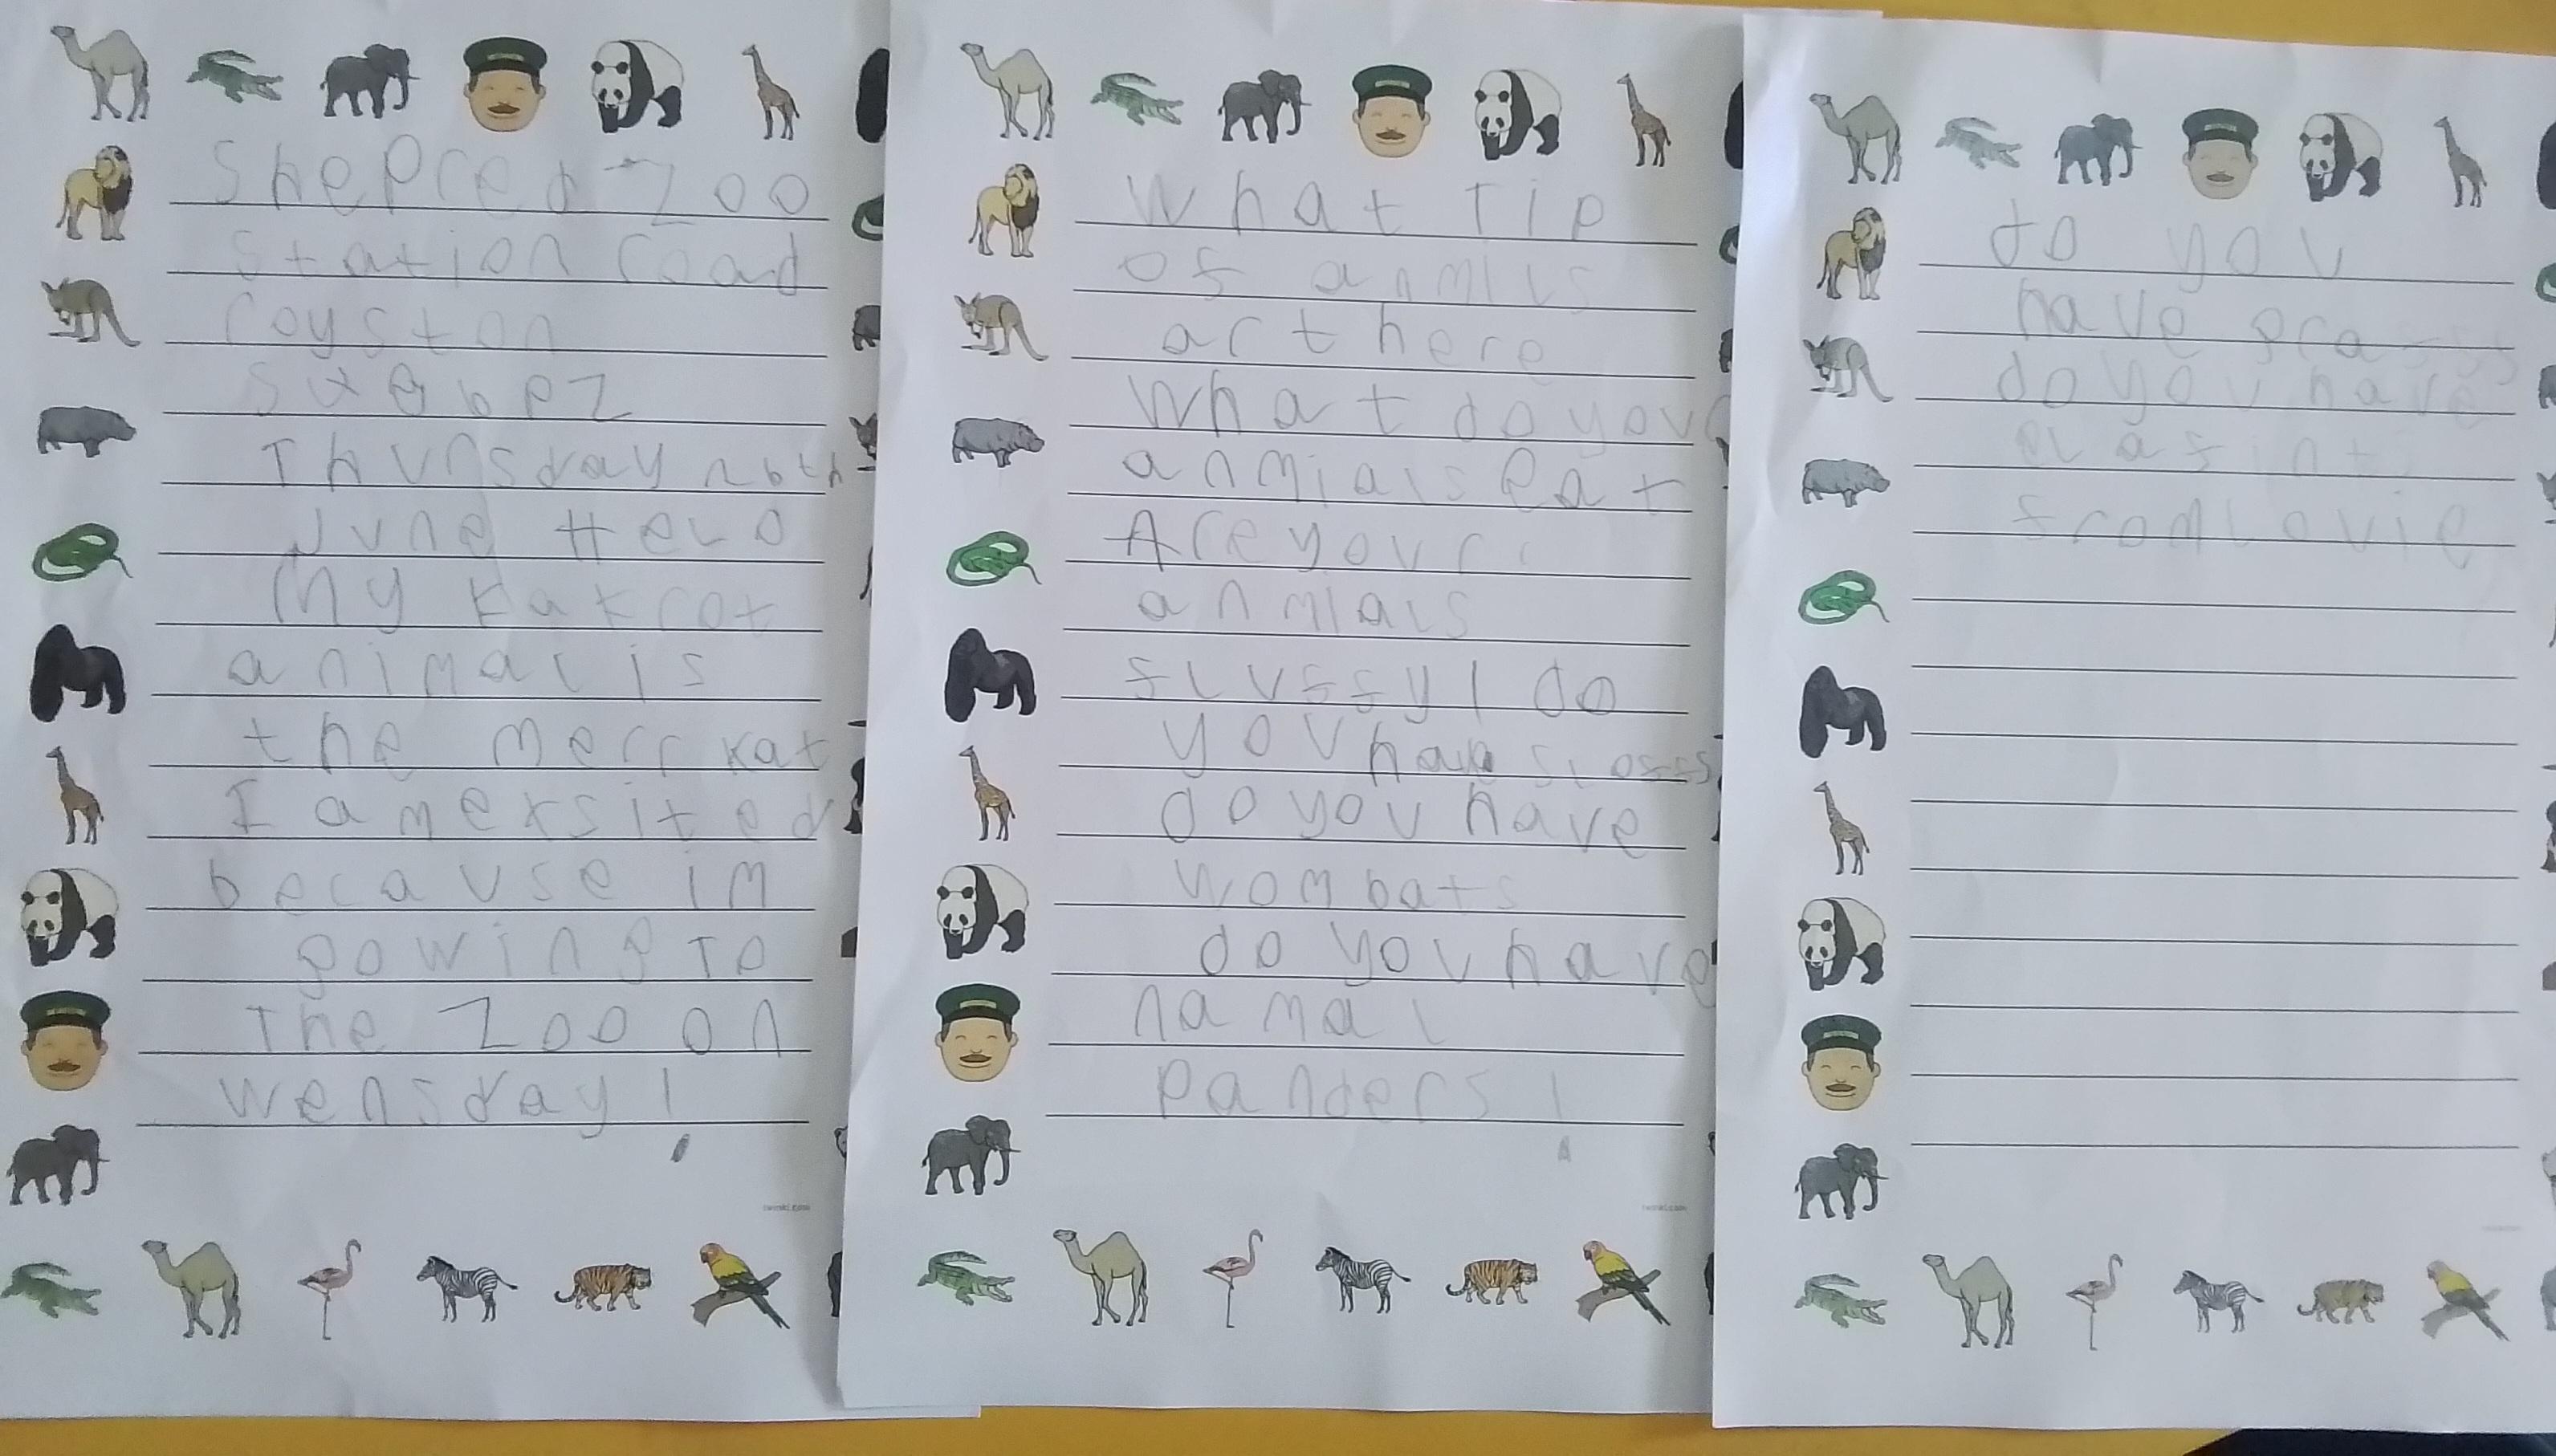 Shepred Zoo
station road
royston
sx8 6pz
Thursday 26th
June Helo
My Kakrot
animal is
the merr kat
I am exsited
because im
gowing To
The Zoo on
wensday!
twinkl.com
What Tip
of anmils
ar there
What do your
anmials eat
Are your
anmials
fluffy! do
you have slofss
do you have
wombats
do you have
namal
panders!
twinkl.com
do you
have grasss
do you have
elafints
from Lovie